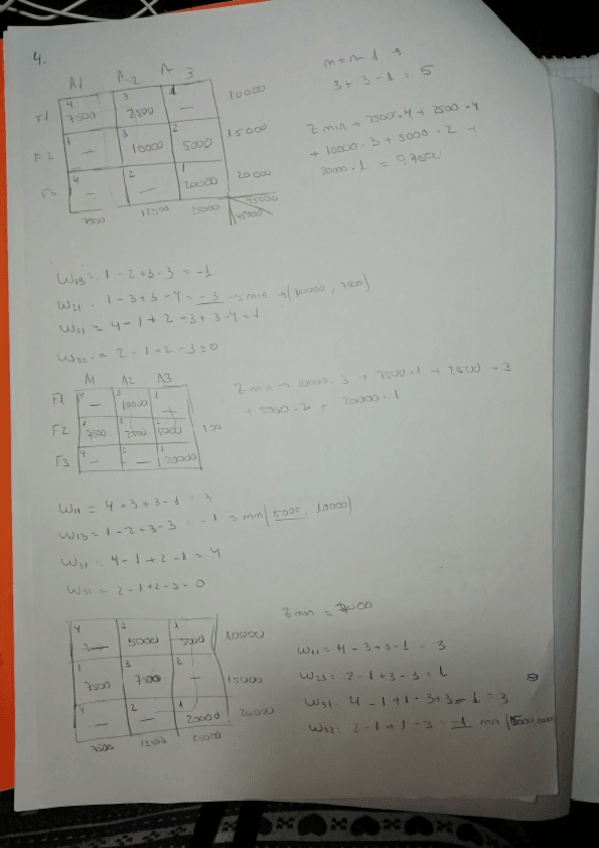 4.
A1 A2 A 3
F1 4 7500 3 2500 1 — 10000
F2 1 — 3 10000 2 5000 15000
F3 4 — 2 — 1 20000 20000
7500 12500 25000 45000
m+n-1
3+3-1=5
Zmin → 7500·4 + 2500·4
+ 10000·3 + 5000·2 +
20000·1 =
W13 = 1-2+3-3 = -1
W21 = 1-3+3-4 = -3 → min (10000, 7500)
= 4-1+2-3+3-4=1
W32 = 2-1-2-3=0
A1 A2 A3
F1 4 — 3 10000 1
F2 1 7500 3 2500 2 5000
F3 4 — 2 — 1 20000
Zmin → 10000·3 + 7500·1 + 2500·3
+ 5000·2 + 20000·1
W11 = 4-3+3-1 = 3
W13 = 1-2+3-3 = -1 → min(5000, 10000)
W31 = 4-1+2-1 = 4
= 2-1+2-3=0
4 — 3 5000 1 5000 10000
1 7500 3 7500 2 — 15000
4 — 2 — 1 20000 20000
7500 12500 25000
Zmin =
W11 = 4-3+3-1 = 3
W23 = 2-1+3-3 = 1
W31 = 4-1+1-3+3-1 = 3
W32 = 2-1+1-3 = -1